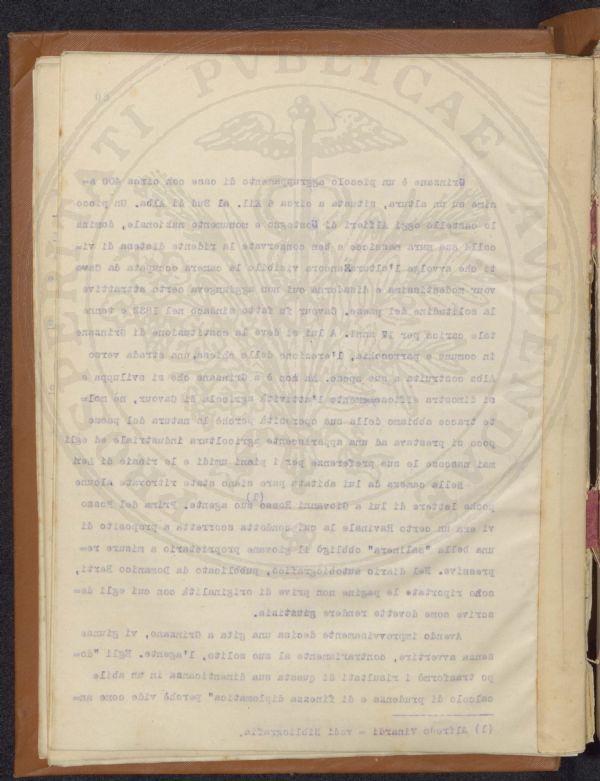 60
Grinzane è un piccolo aggruppamento di case con circa 400 a-
nime su un altura, situata a circa 6 Kil. al Sud di Alba. Un picco
lo castello oggi Alfieri di Sostegno e monumento nazionale, domina
colle sue mura massicce e ben conservate la ridente distesa di vi-
ti che avvolge l'altura. Ancora visibile la camera occupata da Cavo
vour modestissima e disadorna cui non aggiungeva certo attrattive
la solitudine del paese. Cavour fu fatto sindaco nel 1832 e tenne
tale carica per 17 anni. A lui si deve la costituzione di Grinzane
in comune e parrocchia, l'erezione della chiesa, una strada verso
Alba costruita a sue spese. Ma non è a Grinzane che si sviluppa e
si dimostra efficacemente l'attività agricola di Cavour, nè mol-
te tracce abbiamo della sua operosità perchè la natura del paese
poco si prestava ad una appariscente agricoltura industriale ed egli
mai nascose le sue preferenze per i piani umidi e le risaie di Leri
Nella camera da lui abitata pare siano state ritrovate alcune
poche lettere di lui a Giovanni Rosso (1) suo agente. Prima del Rosso
vi era un certo Ravinale la cui condotta scorretta a proposito di
una bella "salinera" obbligò il giovane proprietario a misure re-
pressive. Nel diario autobiografico, pubblicato da Domenico Berti,
sono riportate le pagine non prive di originalità con cui egli de-
scrive come dovette rendere giustizia.
Avendo improvvisamente decisa una gita a Grinzane, vi giunse
senza avvertire, contrariamente al suo solito, l'agente. Egli "do-
po trasformò i risultati di questa sua dimenticanza in un abile
calcolo di prudenza e di finezza diplomatica" perchè vide come an-
(1) Alfredo Vinardi - vedi Bibliografia.